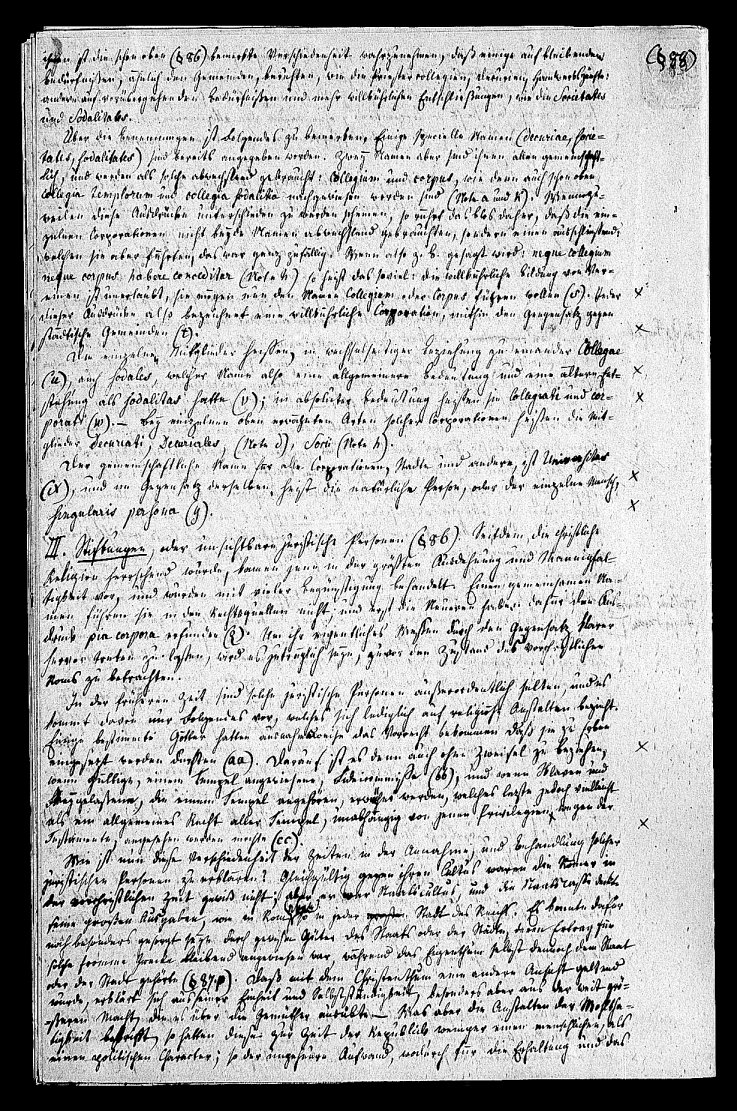 (§ 88)
ihnen ist die schon oben (§ 86) bemerkte Verschiedenheit wahrzunehmen, daß einige auf bleibenden
Bedürfnissen, ähnlich den Gemeinden, beruhten, wie die Priestercollegien, Decurien, Handwerkszünfte:
andere auf vorübergehenden Bedürfnissen und mehr willkührlichen Entschließungen, wie die Societates
und Sodalitates.
Über die Benennungen ist Folgendes zu bemerken. Einige specielle Namen (decuriae, socie-
tates, sodalitates) sind bereits angegeben worden. Zwey Namen aber sind ihnen allen gemeinschaft-
lich, und werden als solche abwechslend gebraucht: Collegium und corpus, wie denn auch schon oben
collegia templorum und collegia sodalitia nachgewiesen worden sind (Note a und k). Wenn zu-
weilen diese Ausdrücke unterschieden zu werden scheinen, so rührt das blos daher, daß die ein-
zelnen Corporationen nicht beyde Namen abwechslend gebrauchten, sondern einen ausschließend;
welchen sie aber führten, das war ganz zufällig. Wenn also z. B. gesagt wird: neque collegium
neque corpus habere conceditur (Note h) so heißt das soviel: die willkührliche Bildung von Ver-
einen ist unerlaubt, sie mögen nun den Namen Collegium oder Corpus führen wollen (s). Jeder
dieser Ausdrücke also bezeichnet eine willkührliche Corporation, mithin den Gegensatz gegen
städtische Gemeinden (t).
Die einzelnen Mitglieder heißen, in wechselseitiger Beziehung zu einander Collegae
(u), auch sodales, welcher Name also eine allgemeinere Bedeutung und eine ältere Ent-
stehung als sodalitas hatte (v); in absoluter Bedeutung heißen sie Collegiati und cor-
porati (w). — Bey einzelnen oben erwähnten Arten solcher Corporationen heißen die Mit-
glieder Decuriati, Decuriales, (Note d), Socii (Note h).
Der gemeinschaftliche Name für alle Corporationen, Städte und andere, ist Universitas
(x), und im Gegensatz derselben heißt die natürliche Person, oder der einzelne Mensch,
singularis persona (y).
III. Stiftungen, oder unsichtbare juristische Personen (§ 86). Seitdem die christliche
Religion herrschend wurde, kamen jene in der größten Ausdehnung und Mannigfal-
tigkeit vor, und wurden mit vieler Begünstigung behandelt. Einen gemeinsamen Na-
men führen sie in den Rechtsquellen nicht, und erst die Neueren haben dafür den Aus-
druck pia corpora erfunden (z). Um ihr eigentliches Wesen durch den Gegensatz klarer
hervor treten zu lassen, wird es zuträglich seyn, zuvor den Zustand des vorchristlichen
Roms zu betrachten.
In der früheren Zeit sind solche juristische Personen außerordentlich selten, und es
kommt davon nur Folgendes vor, welches sich lediglich auf religiöse Anstalten bezieht.
Einige bestimmte Götter hatten ausnahmsweise das Vorrecht bekommen daß sie zu Erben
eingesetzt werden durften (aa). Darauf ist es denn auch ohne Zweifel zu beziehen,
wenn gültige, einem Tempel angewiesene, Fideicommisse (bb), und wenn Sklaven und
Freygelassene, die einem Tempel angehören, erwähnt werden, welches letzte jedoch vielleicht
als ein allgemeines Recht aller Tempel, unabhängig von jenen Privilegien wegen der
Testamente, angesehen werden mochte (cc).
Wie ist nun diese Verschiedenheit der Zeiten in der Annahme und Behandlung solcher
juristischen Personen zu erklären? Gleichgültig gegen ihren Cultus waren die Römer in
der vorchristlichen Zeit gewiß nicht; aber er war Staatscultus, und die Staatscasse deckte
seine großen Ausgaben, wie in Rom in jeder Stadt des Reichs. Es konnte dafür
noch besonders gesorgt seyn durch gewisse Güter des Staats oder der Städte, deren Ertrag für
solche fromme Zwecke bleibend angewiesen war, während das Eigenthum selbst dennoch dem Staat
oder der Stadt gehörte (§ 87). Daß mit dem Christenthum eine andere Ansicht geltend
wurde, erklärt sich aus seiner Einheit und Selbstständigkeit, besonders aber aus der weit grö-
ßeren Macht, die es über die Gemüther ausübte. — Was aber die Anstalten der Wohlthä-
tigkeit betrifft, so hatten diese zur Zeit der Republik weniger einen menschlichen, als
einen politischen Character; so der ungeheure Aufwand, wodurch für die Erhaltung und das